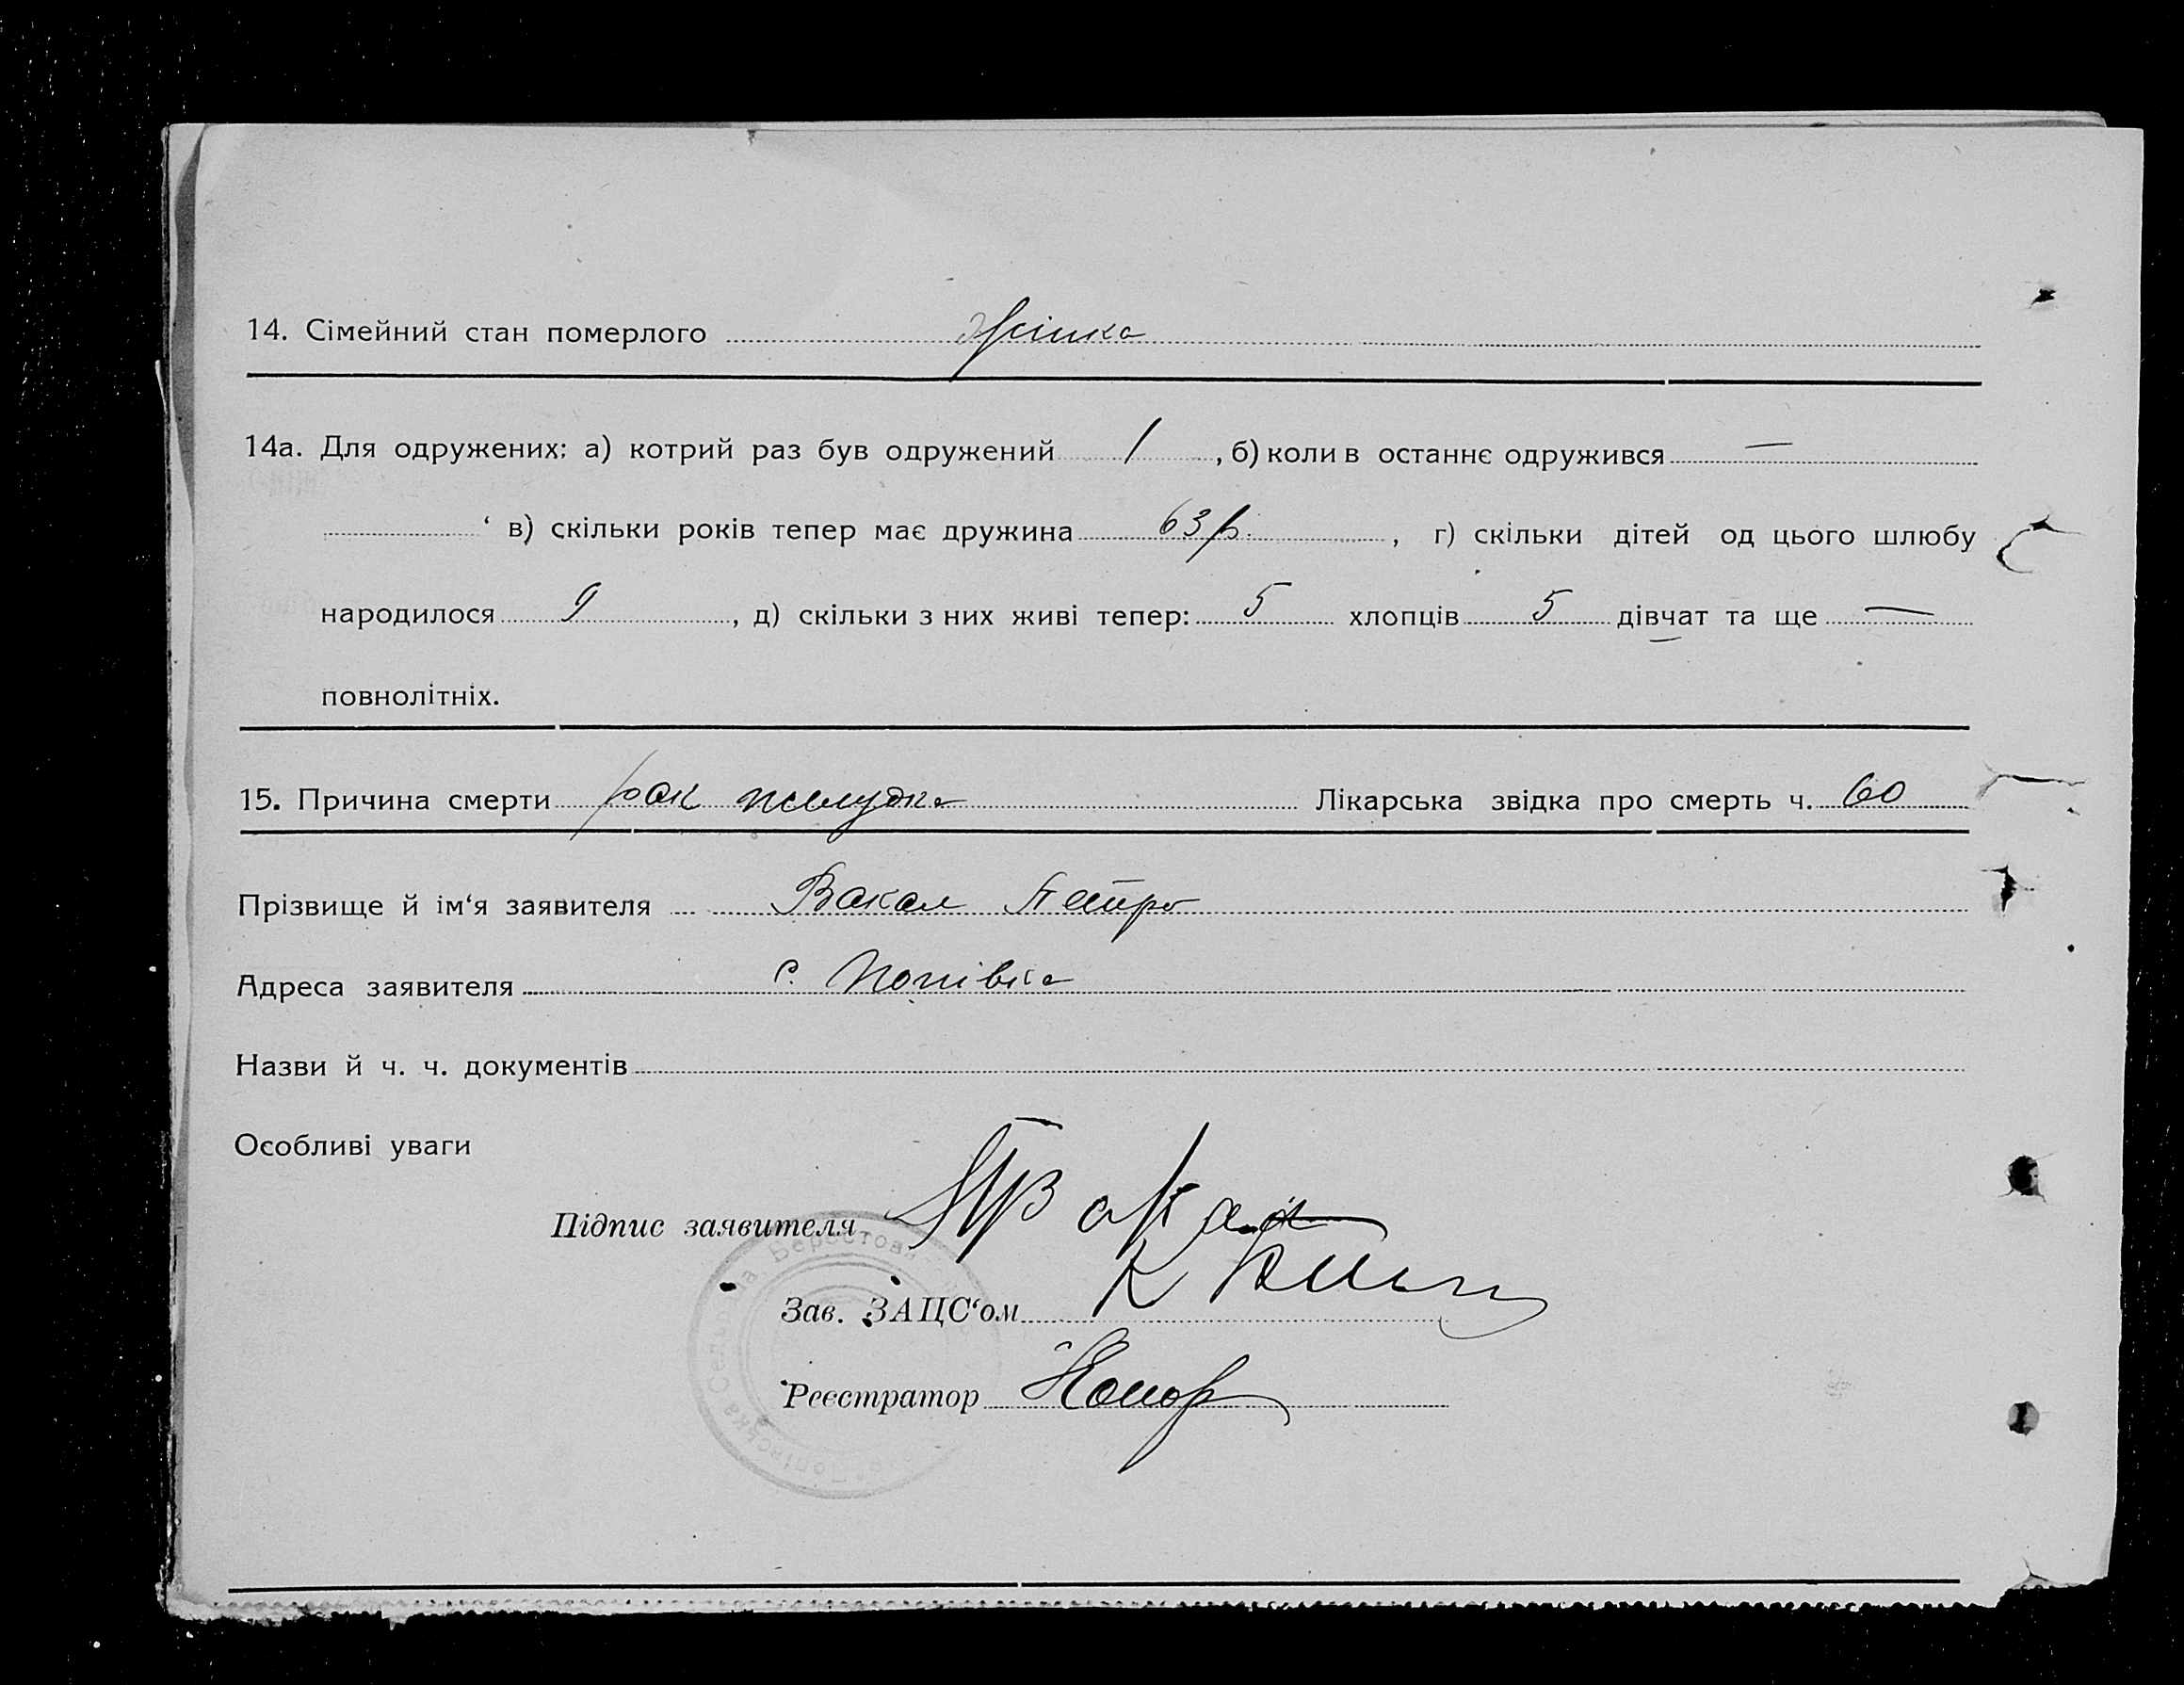 14. Сімейний стан померлого
14а. Для одружених: а) котрий раз був одружений 1 , б) коли в останнє одружився —
‘ в) скільки років тепер має дружина 63 р. , г) скільки дітей од цього шлюбу
народилося 9 , д) скільки з них живі тепер: 5 хлопців 5 дівчат та ще —
повнолітніх.
15. Причина смерти рак желудка Лікарська звідка про смерть ч. 60
Прізвище й ім‘я заявителя Вакал Петро
Адреса заявителя с. Попівка
Назви й ч. ч. документів
Особливі уваги
Підпис заявителя
Зав. ЗАЦС‘ом
Реєстратор